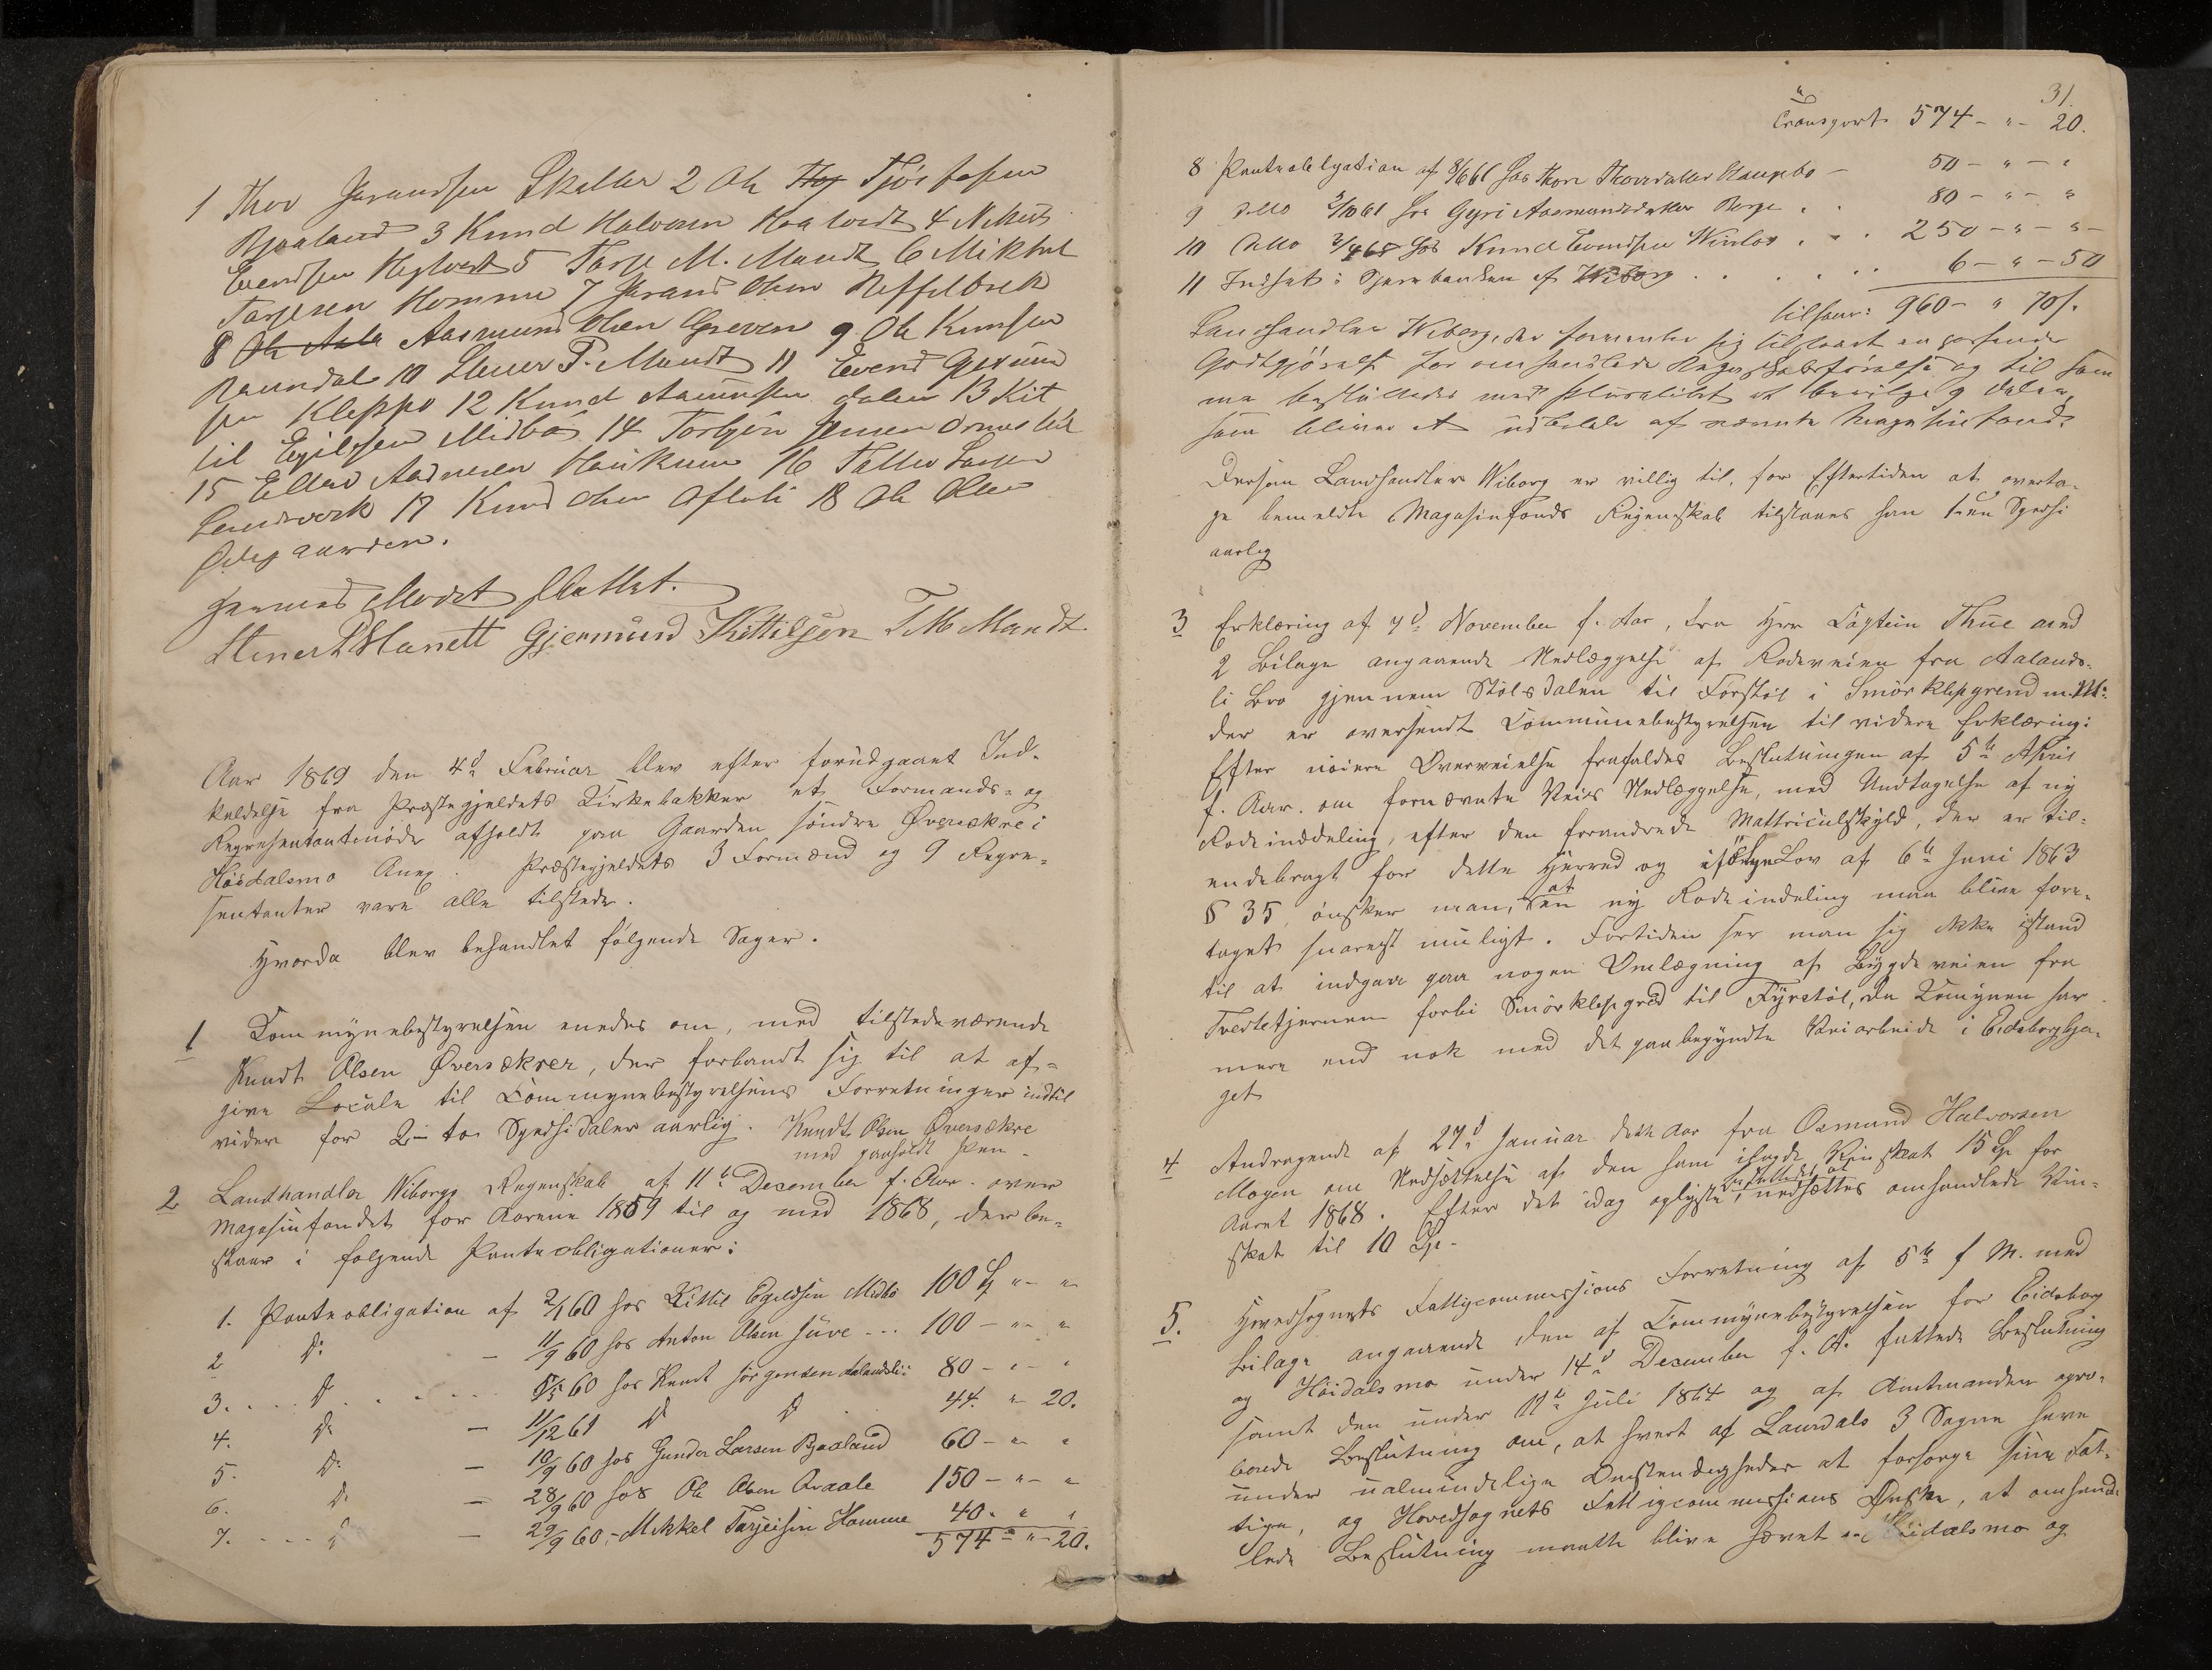 1 Thor Jørundsen Skalle 2 Ole Tjøs
Bjaaland 3 Knud Halvorsen Haatveit 4
Evendsen 5 Tarje M. Mandt 6 Mikkel
Tarjesen Homme 7 Jørand Olsen
8 Aasmund Olsen Greven 9 Ole Knudsen
10 P. Mandt 11 Evend
Kleppo 12 Knud Aamundsen Dalen 13 Kit
til Egilsen Midbø 14 Torbjør Jensen
15 16 Tallev
17 Knud Olsen Ofteli 18 Ole Olsen
Ødegaarden.
Mandt T M Mandt
Aar 1869 den 4d Februar blev efter forudgaaet Ind-
kaldelse fra Præstegjeldets Kirkebakker et Formands- og
Repræsentantmøde afholdt paa Gaarden søndre Øversækre i
Høidalsmo Anex. Præstegjeldets 3 Formænd og 9 Repræ-
sentanter vare alle tilstede.
Hvorda blev behandlet følgende Sager.
1 Kommynebestyrelsen enedes om, med tilstedeværende
Knudt Olsen Øversækrer, der forbandt sig til at af-
give Locale til Commynebestyrelsens Forretninger indtil
videre for 2 – to Speciedaler aarlig. Knudt Olsen Øversækre
med paaholdt Pen –
2 Landhandler Wiborgs Regenskab af 11te December f. Aar. over
Magasinfondet for Aarene 1859 til og med 1868, der be-
staar i følgende Panteobligationer:
1. Panteobligation af 2/1 60 hos Kittil Egildsen Midbø 100 " – "
2 D: – 11/9 60 hos Anton Olsen Juve ... 100 – " – "
3. D 5/5 60 hos Knudt Jørgensen Aalandsli: 80 – " – "
4. D: – 11/12 61 D D 44. " 20.
5. D: – 10/9 60 hos Gunder Larsen Bjaaland 60 – " "
6. D. – 28/9 60 hos Ole Olsen 150 – " – "
7. D – 29/9 60, – Mikkel Tarjeisen Homme 40. " "
574 – " – 20.
31.
Transport 574 – " – 20.
8 Panteobligation af 8/6 61 hos Thone – 50 – " – "
9 ditto 2/10 61 hos Gyri Aasmundsdatter Berge . . 80 – " – "
10 ditto 2/4 65 hos Knud Evendsen . . . 250 – " – " –
11 Indsat i Sparebanken af Wiborg . . . . . 6 – " – 50
tilsam: 960 – " 70 s.
Landhandler Wiborg, der formente sig tilstaaet en passende
Godtgjørelse for omhandlede Regnskabsførelse og til sam
me besluttedes med Pluralitet at bevilge 9 Daler,
som bliver at udbetale af nævnte Magasinfond.
Dersom Landhandler Wiborg er villig til, for Eftertiden at overta-
ge bemeldte Magasinfonds Regenskab tilstaaes han 1 – en Specsi
aarlig
3 Erklæring af 7d November f. Aar, fra Herr Captein Thue med
2 Bilage angaaende Nedlæggelse af Rodeveien fra Aalands-
li Bro gjennem Stølsdalen til Førstøl i Smørklepgrend m. M:
der er oversendt Communebestyrelsen til videre Erklæring:
Efter nøiere Overveielse frafaldes Beslutningen af 5te April
f. Aar. om fornævnte Veies Nedlæggelse, med Undtagelse af ny
Rodeinddeling, efter den forandrede Mattriculskyld, der er til-
endebragt for dette Herred og ifølge Lov af 6te Juni 1863
§ 35, ønsker man, at en ny Rodeindeling maa blive fore-
taget snarest muligt. Fortiden ser man sig ikke istand
til at indgaa paa nogen Omlægning af Bygdeveien fra
Tveitetjernem forbi Smørklepgrend til Fyrestøl, da Komynen har
mere end nok med det paabegyndte Veiarbeide i Eidsborgbja-
get
4 Andragende af 27d Januar dette Aar fra Osmund Halvorsen
Mogen om Nedsættelse af den ham ilagde Veiskat 15 for
Aaret 1868. Efter det idag oplyste besluttedes at nedsættes omhandlede Vei-
skat til 10
5. Hovedsognets Fattigcommissions Forretning af 5te f M. med
Bilage angaaende den af Commynebestyrelsen for Eidsborg
og Høidalsmo under 14d December f. A. fattede Beslutning
samt den under 11te Juli 1864 og af Amtmanden apro-
berede Beslutning om, at hvert af Laurdals 3 Sogne have
under ualmindelige Omstendigheder at forsørge sine Fat-
tige, og Hovedsognets Fattigcommissions Ønske, at omhand-
lede Beslutning maatte blive hævet – Høidalsmo og